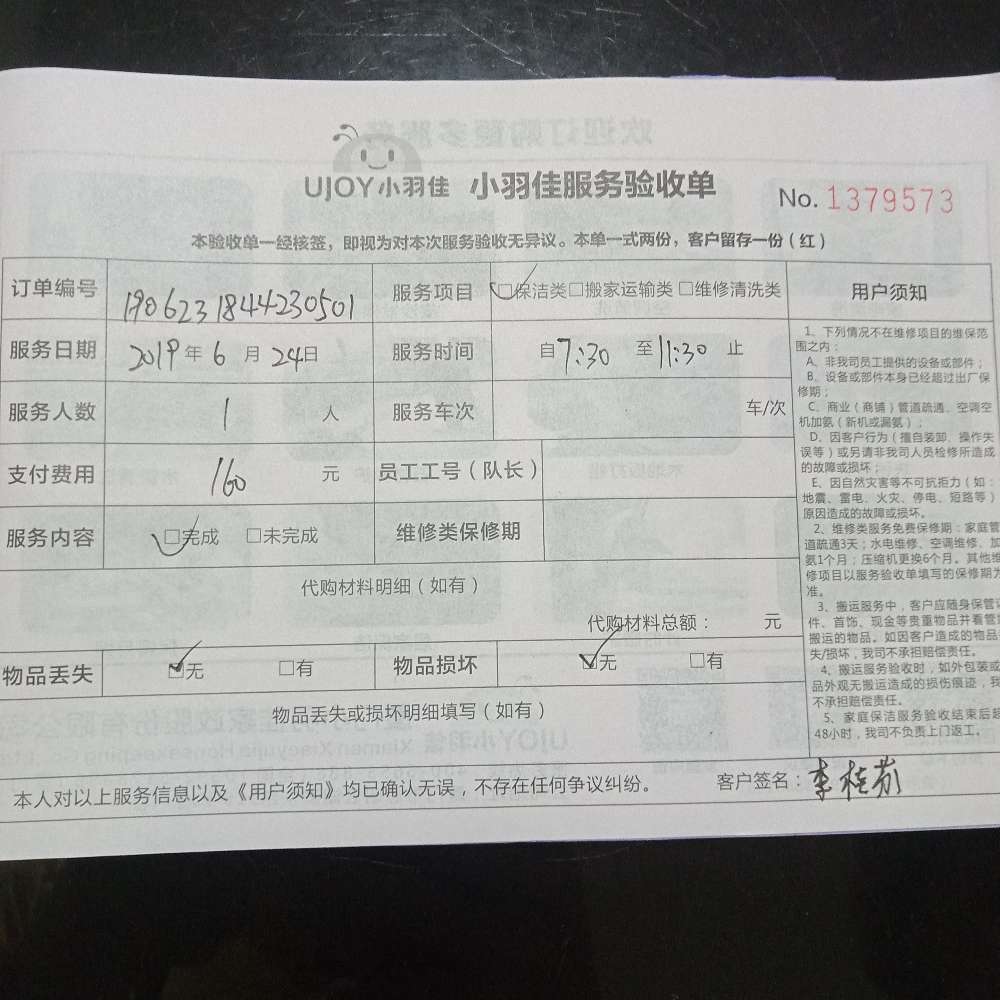 UJOY小羽佳 小羽佳服务验收单 No. 1379573
本验收单一经核签，即视为对本次服务验收无异议。本单一式两份，客户留存一份（红）
订单编号 1906231844230501 服务项目 □保洁类□搬家运输类 □维修清洗类
服务日期 2019年 6 月 24日 服务时间 自7:30 至11:30 止
服务人数 1 人 服务车次 车/次
支付费用 160 元 员工工号（队长）
服务内容 □完成 □未完成 维修类保修期
代购材料明细（如有）
代购材料总额： 元
物品丢失 □无 □有 物品损坏 □无 □有
物品丢失或损坏明细填写（如有）
本人对以上服务信息以及《用户须知》均已确认无误，不存在任何争议纠纷。 客户签名：李桂芬
用户须知
1、下列情况不在维修项目的维保范
围之内：
A、非我司员工提供的设备或部件；
B、设备或部件本身已经超过出厂保
修期；
C、商业（商铺）管道疏通、空调空
机加氨（新机或漏氨）；
D、因客户行为（擅自装卸、操作失
误等）或另请非我司人员检修所造成
的故障或损坏；
E、因自然灾害等不可抗拒力（如：
地震、雷电、火灾、停电、短路等）
原因造成的故障或损坏。
2、维修类服务免费保修期：家庭管
道疏通3天；水电维修、空调维修、加
氨1个月；压缩机更换6个月。其他维
修项目以服务验收单填写的保修期为
准。
3、搬运服务中，客户应随身保管证
件、首饰、现金等贵重物品并看管
搬运的物品。如因客户造成的物品
失/损坏，我司不承担赔偿责任。
4、搬运服务验收时，如外包装或
品外观无搬运造成的损伤痕迹，我
不承担赔偿责任。
5、家庭保洁服务验收结束后超
48小时，我司不负责上门返工。